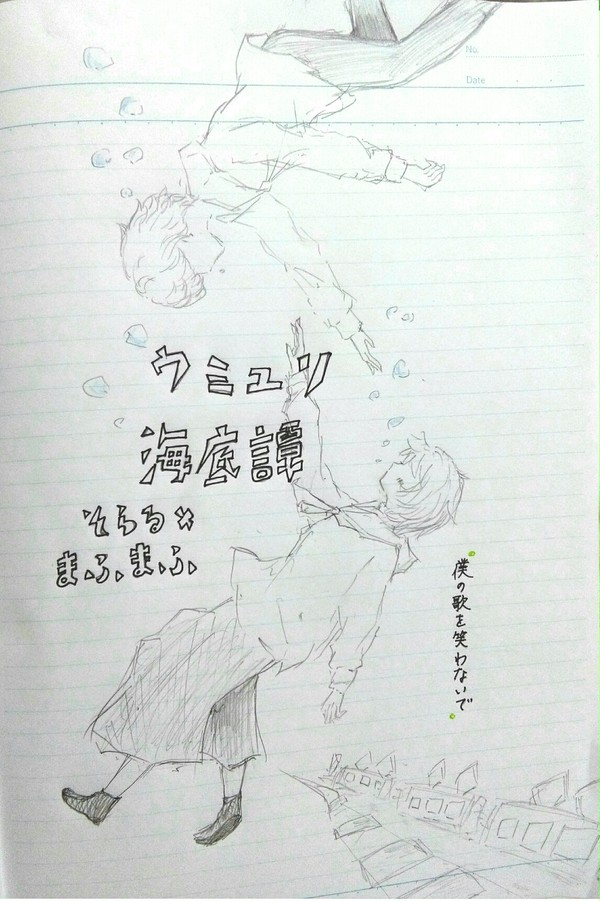 No.
Date
ウミユリ
海底譚
そらる×
まふまふ
僕の歌を笑わないで